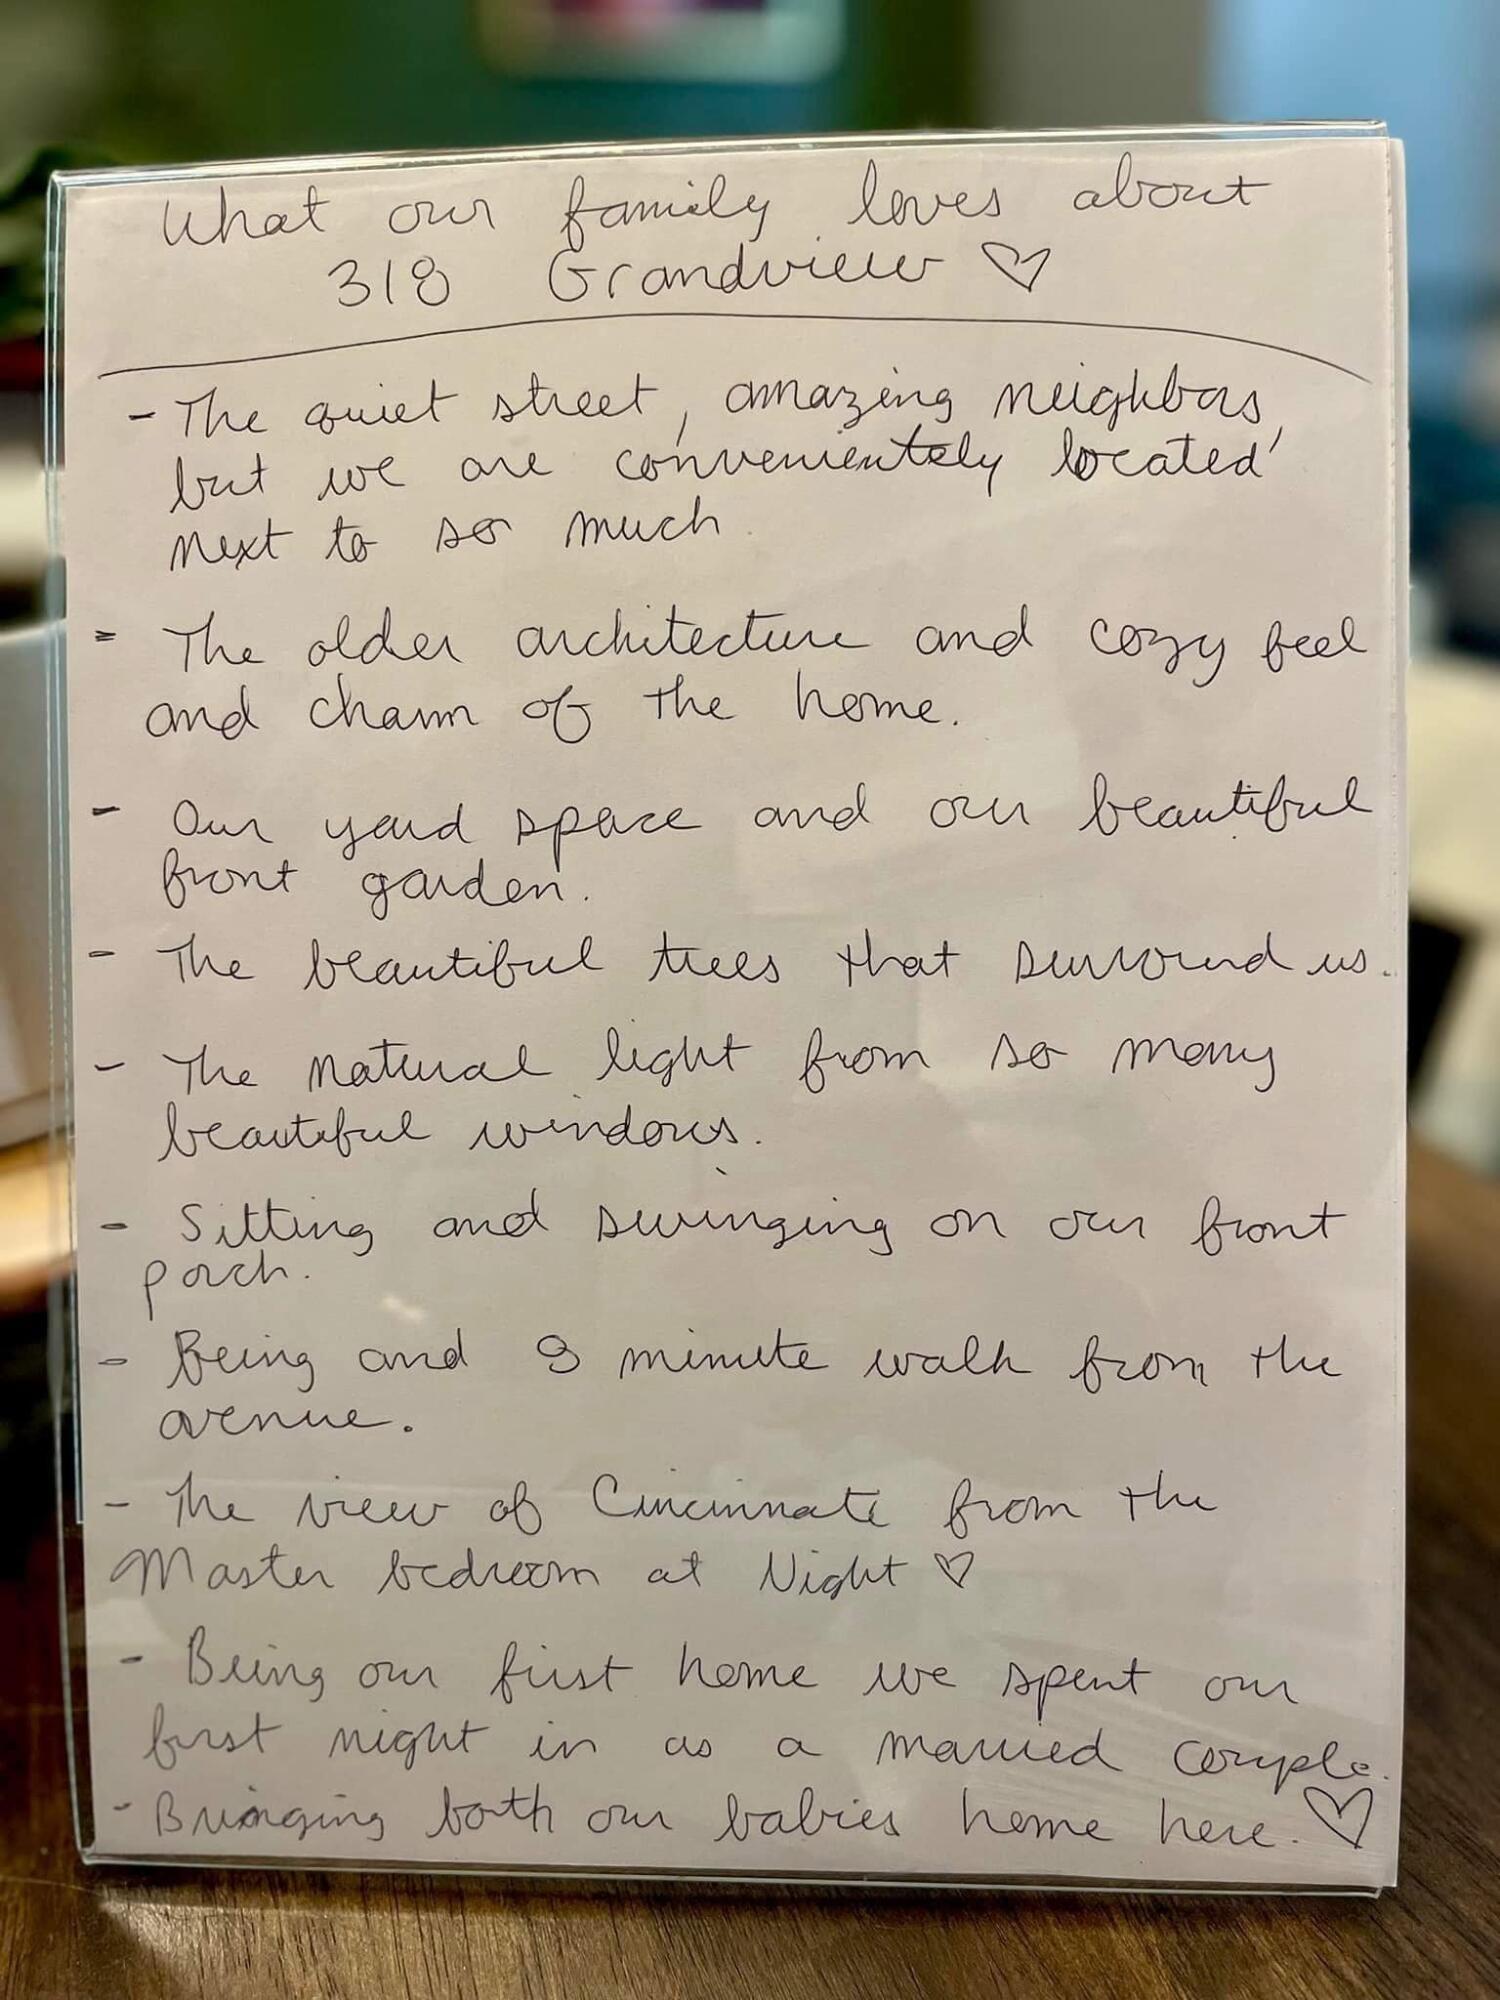 What our family loves about
318 Grandview ♡
- The quiet street, amazing neighbors,
but we are convenientely located
next to so much.
- The older architecture and cozy feel
and charm of the home.
- Our yard space and our beautiful
front garden.
- The beautiful trees that surround us.
- The natural light from so many
beautiful windows.
- Sitting and swinging on our front
porch.
- Being and 3 minute walk from the
avenue.
- The view of Cincinnati from the
Master bedroom at Night ♡
- Being our first home we spent our
first night in as a married couple.
- Bringing both our babies home here. ♡